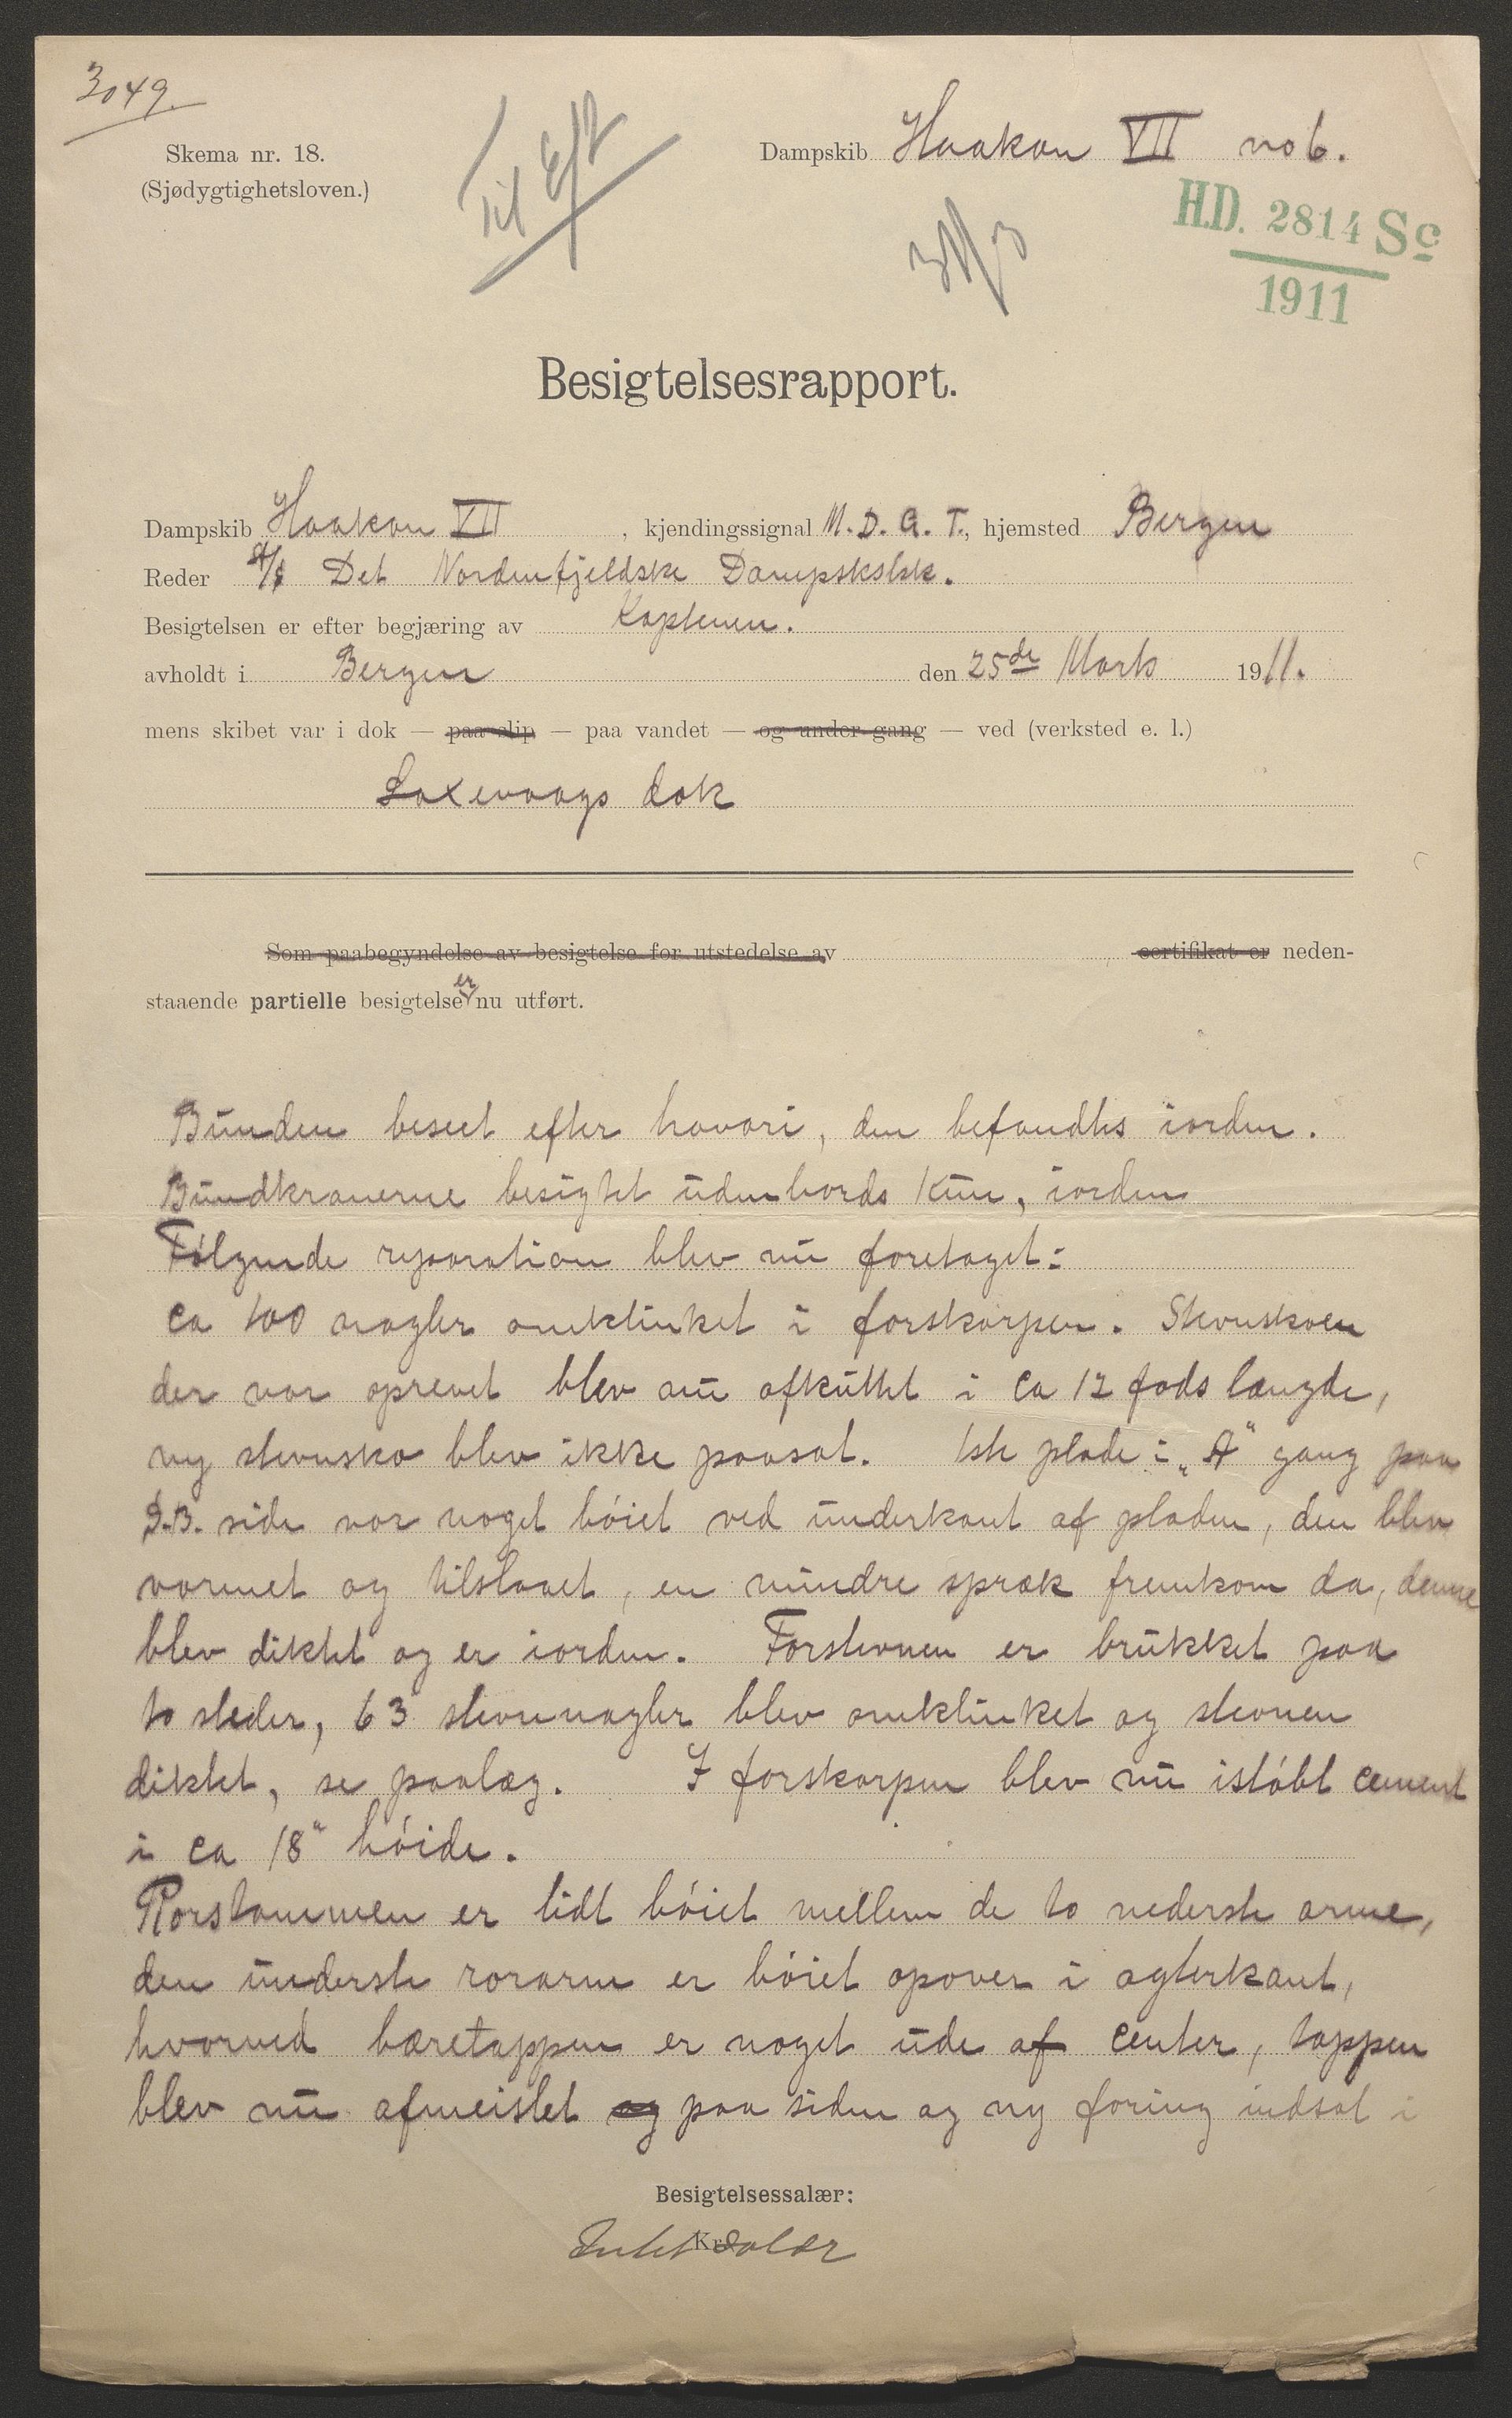 3049.
Skema nr. 18.
(Sjødygtighetsloven.)
Til Eft
Dampskib Haakon VII no 6.
H.D. 2814 Sc
1911
Besigtelsesrapport.
Dampskib Haakon VII, kjendingssignal M. D. G. T., hjemsted Bergen
Reder A/S Det Nordenfjeldske Dampskslsk.
Besigtelsen er efter begjæring av Kaptenen.
avholdt i Bergen den 25de Marts 1911.
mens skibet var i dok — paa slip — paa vandet — og under gang — ved (verksted e. l.)
Laxevaags dok
Som paabegyndelse av besigtelse for utstedelse av certifikat er neden-
staaende partielle besigtelse er nu utført.
Bunden beseet efter havari, den befandtes iorden.
Bundkranerne besigtet udenbords kun, iorden
Følgende reparation blev nu foretaget:
Ca 100 nagler omklinket i forskarpen. Stevnskoen
der var oprevet blev nu afkuttet i ca 12 fods længde,
ny stevnsko blev ikke paasat. 1ste plade i „A“ gang paa
S.B. side var noget bøiet ved underkant af pladen, den blev
varmet og tilslaaet, en mindre spræk fremkom da, denne
blev diktet og er iorden. Forstevnen er brukket paa
to steder, 63 stevnnagler blev omklinket og stevnen
diktet, se paalæg. I forskarpen blev nu istøbt cement
i ca 18" høide.
Rorstammen er lidt bøiet mellem de to nederste arme,
den underste rorarm er bøiet opover i agterkant,
hvorved bæretappen er noget ude af center, tappen
blev nu afmeislet og paa siden og ny foring indsat i
Besigtelsessalær:
Kr.
Intet salær